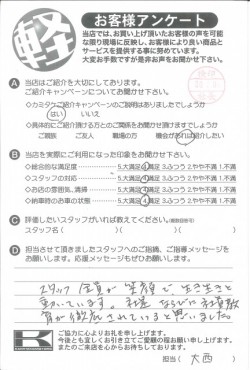 軽
お客様アンケート
当店では、お買い上げ頂いたお客様の声を可能
な限り現場に反映し、お客様により良い商品と
サービスを提供する事に努めています。
大変お手数ですが是非お声をお聞かせ下さい。
A 当店はご紹介を大切にしております。
ご紹介キャンペーンについてお聞かせ下さい。
◇カミタケご紹介キャンペーンのご説明はありましたでしょうか
はい いいえ
◇具体的にご紹介頂ける方とのご関係をお聞かせ頂けますでしょうか
ご親族 ご友人 職場の方 機会があれば紹介したい
B 当店を実際にご利用になった印象をお聞かせ下さい。
◇総合的な満足度 5.大満足 4.満足 3.ふつう 2.やや不満 1.不満
◇スタッフの対応 5.大満足 4.満足 3.ふつう 2.やや不満 1.不満
◇お店の雰囲気、清掃 5.大満足 4.満足 3.ふつう 2.やや不満 1.不満
◇納車時のお車の状態 5.大満足 4.満足 3.ふつう 2.やや不満 1.不満
C 評価したいスタッフがいれば教えてください。(複数回答可)
スタッフ名( )( )( )
D 担当させて頂きましたスタッフへのご指摘、ご指導メッセージを
お願いします。応援メッセージもぜひお願いします。
スタッフ 全員が 笑顔で 生き生きと
動いています。社長 ならびに 社員教
育が徹底されていると思いました。
K
ご協力に心よりお礼を申し上げます。
今後とも宜しくお引き立てご愛顧の程お願い申し上げます。
またのご来店を心からお待ちしております。
担当( 大西 )